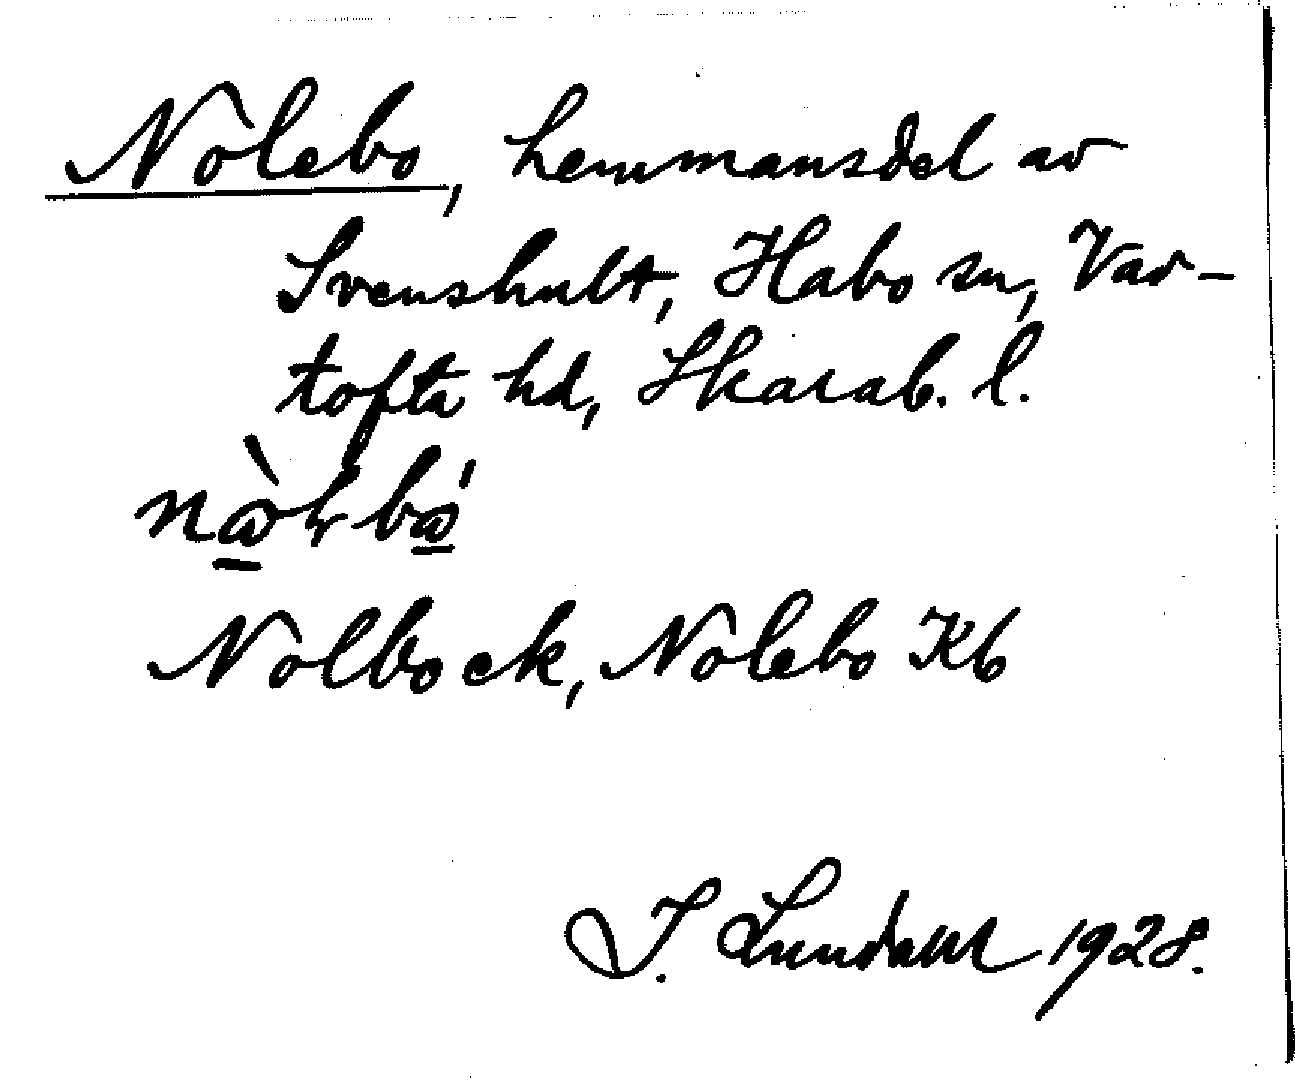 Nolebo, hemmansdel av
Svenshult, Habo sn, Var-
tofta hd, Skarab. l.
Nolbock, Nolebo Kb
I. Lundahl 1928.